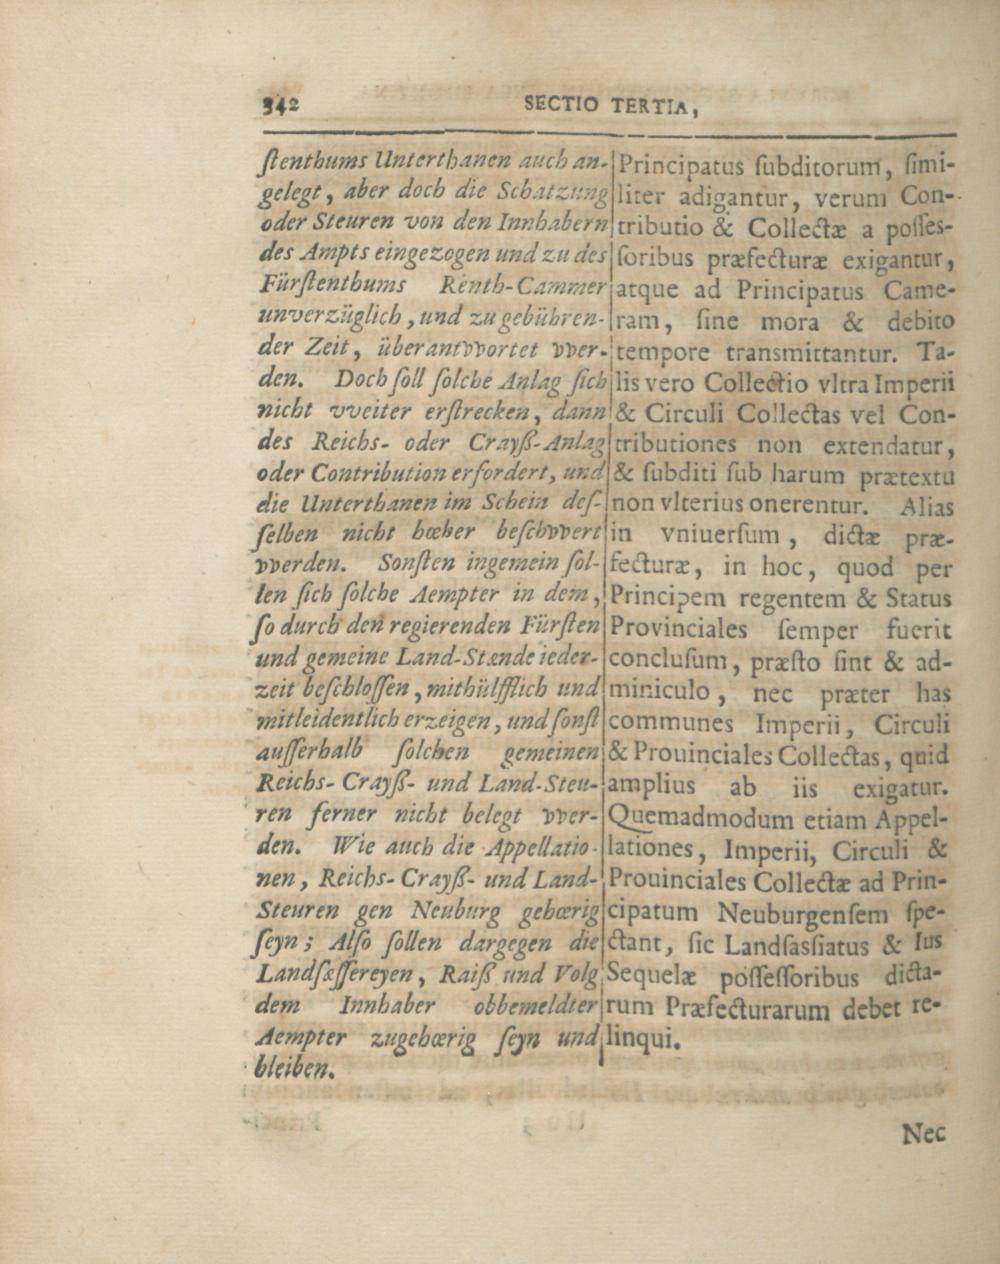 342
SECTIO TERTIA,
ſtenthums Unterthanen auch an-
gelegt, aber doch die Schatzung
oder Steuren von den Innhabern
des Ampts eingezogen und zu des
Fürſtenthums Renth-Cammer
unverzüglich, und zu gebühren-
der Zeit, überantvvortet vver-
den. Doch ſoll ſolche Anlag ſich
nicht vveiter erſtrecken, dann
des Reichs- oder Crayß-Anlag
oder Contribution erfordert, und
die Unterthanen im Schein deſ-
ſelben nicht hœher beſchvvert
vverden. Sonſten ingemein ſol-
len ſich ſolche Aempter in dem,
ſo durch den regierenden Fürſten
und gemeine Land-Stænde ieder-
zeit beſchloſſen, mithülfflich und
mitleidentlich erzeigen, und ſonſt
auſſerhalb ſolchen gemeinen
Reichs- Crayß- und Land-Steu-
ren ferner nicht belegt vver-
den. Wie auch die Appellatio-
nen, Reichs- Crayß- und Land-
Steuren gen Neuburg gehœrig
ſeyn; Alſo ſollen dargegen die
Landſæſſereyen, Raiß und Volg
dem Innhaber obbemeldter
Aempter zugehœrig ſeyn und
bleiben.
Principatus ſubditorum, ſimi-
liter adigantur, verum Con-
tributio & Collectæ a poſſeſ-
ſoribus præfecturæ exigantur,
atque ad Principatus Came-
ram, ſine mora & debito
tempore transmittantur. Ta-
lis vero Collectio vltra Imperii
& Circuli Collectas vel Con-
tributiones non extendatur,
& ſubditi ſub harum prætextu
non vlterius onerentur. Alias
in vniuerſum, dictæ præ-
fecturæ, in hoc, quod per
Principem regentem & Status
Provinciales ſemper fuerit
concluſum, præſto ſint & ad-
miniculo, nec præter has
communes Imperii, Circuli
& Prouinciales Collectas, quid
amplius ab iis exigatur.
Quemadmodum etiam Appel-
lationes, Imperii, Circuli &
Prouinciales Collectæ ad Prin-
cipatum Neuburgenſem ſpe-
ctant, ſic Landſaſſiatus & Ius
Sequelæ poſſeſſoribus dicta-
rum Præfecturarum debet re-
linqui.
Nec